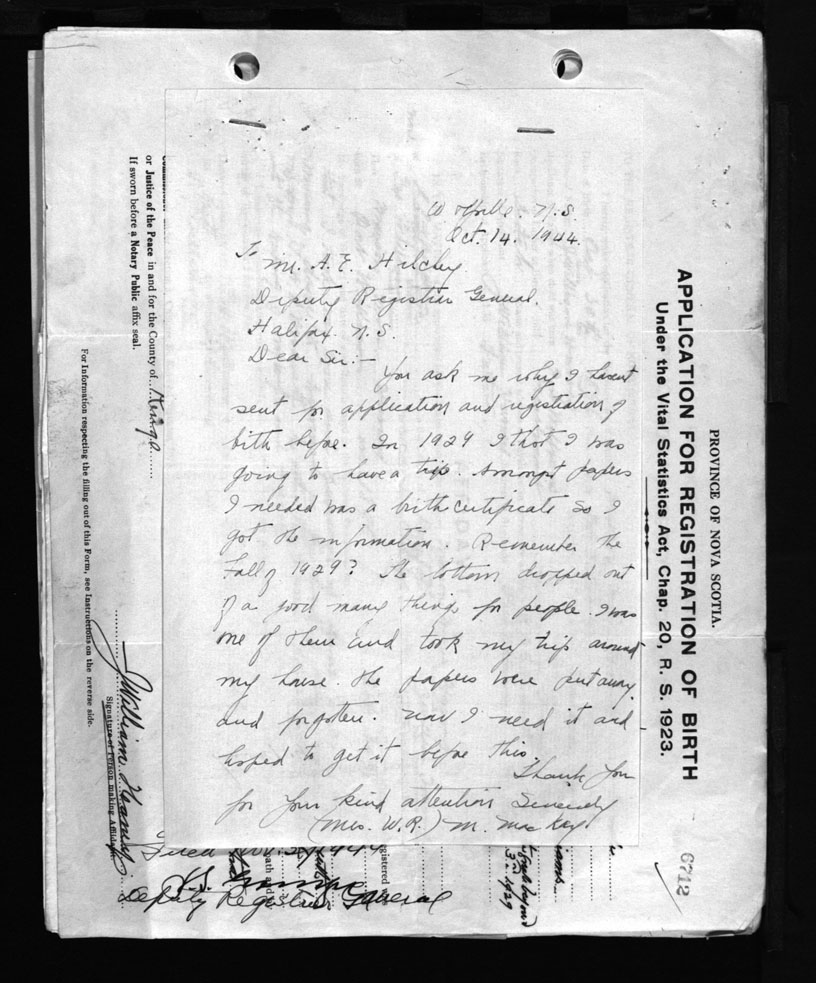 Wolfville. N.S.
Oct. 14. 1944.
To Mr. A. E. Hilchey
Deputy Registrar General.
Halifax. N.S.
Dear Sir:-
You ask me why I havent
sent for application and registration of
birth before. In 1929 I thot I was
going to have a trip. Amongst papers
I needed was a birth certificate so I
got the information. Remember the
Fall of 1929? The bottom dropped out
of a good many things for people. I was
one of them and took my trip around
my house. The papers were put away
and forgotten. Now I need it and
hoped to get it before this.
Thank You
for your kind attention Sincerely
(Mrs. W.R.) M. MacKay
PROVINCE OF NOVA SCOTIA.
APPLICATION FOR REGISTRATION OF BIRTH
Under the Vital Statistics Act, Chap. 20, R. S. 1923.
6712
or Justice of the Peace in and for the County of Kings
If sworn before a Notary Public affix seal.
For Information respecting the filling out of this Form, see Instructions on the reverse side.
J. William
Signature of Person making Affidavit
Filed Nov.
Deputy Registrar General
3rd 1929